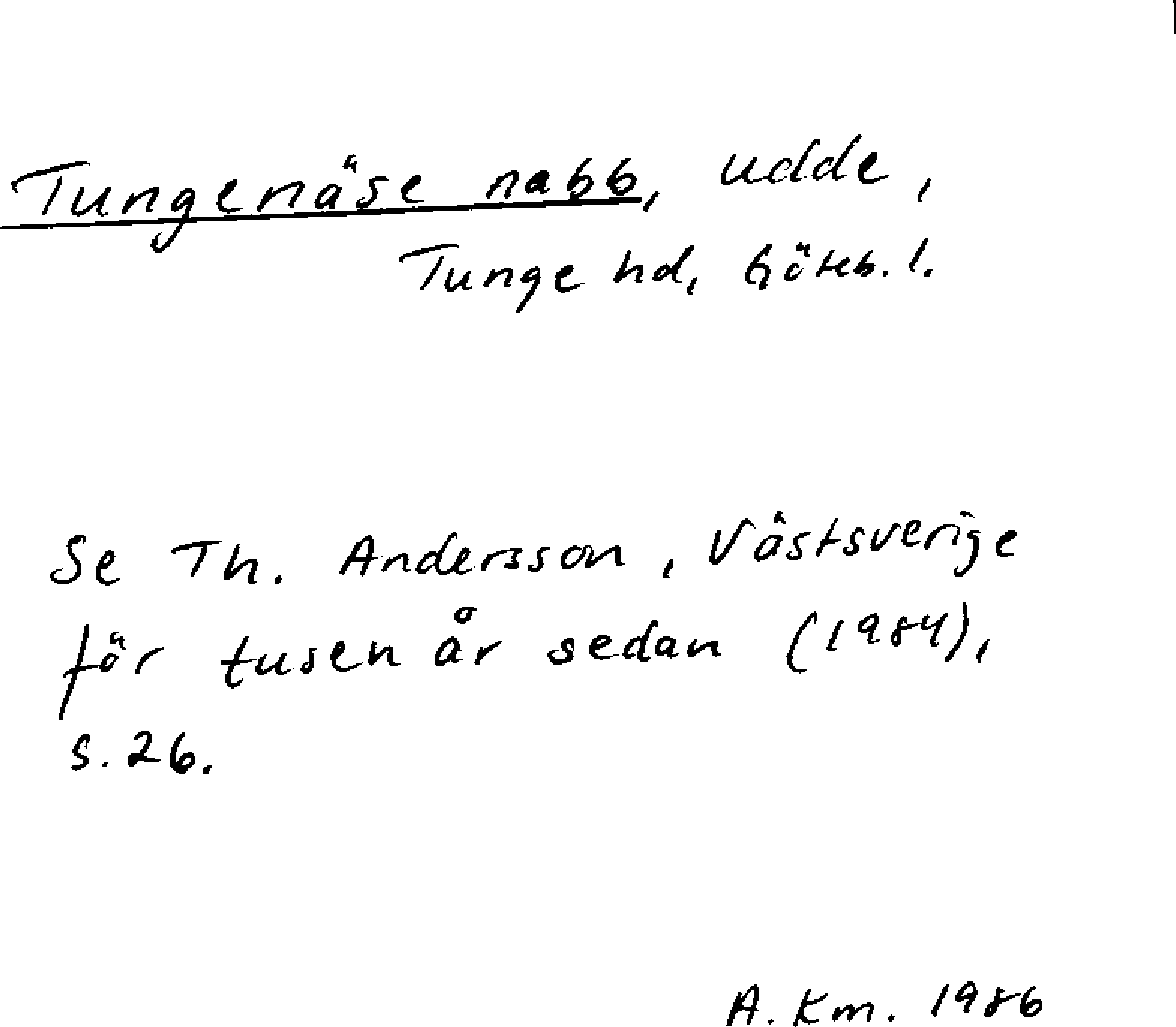 Tungenäse nabb, udde,
Tunge hd, Göteb. l.
Se Th. Andersson, Västsverige
för tusen år sedan (1984),
s. 26.
A. Km. 1986